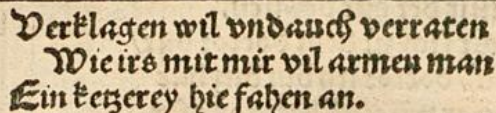 Verklagen wil vnd auch verraten
Wie irs mit mir vil armen man
Ein ketzerey hie fahen an.